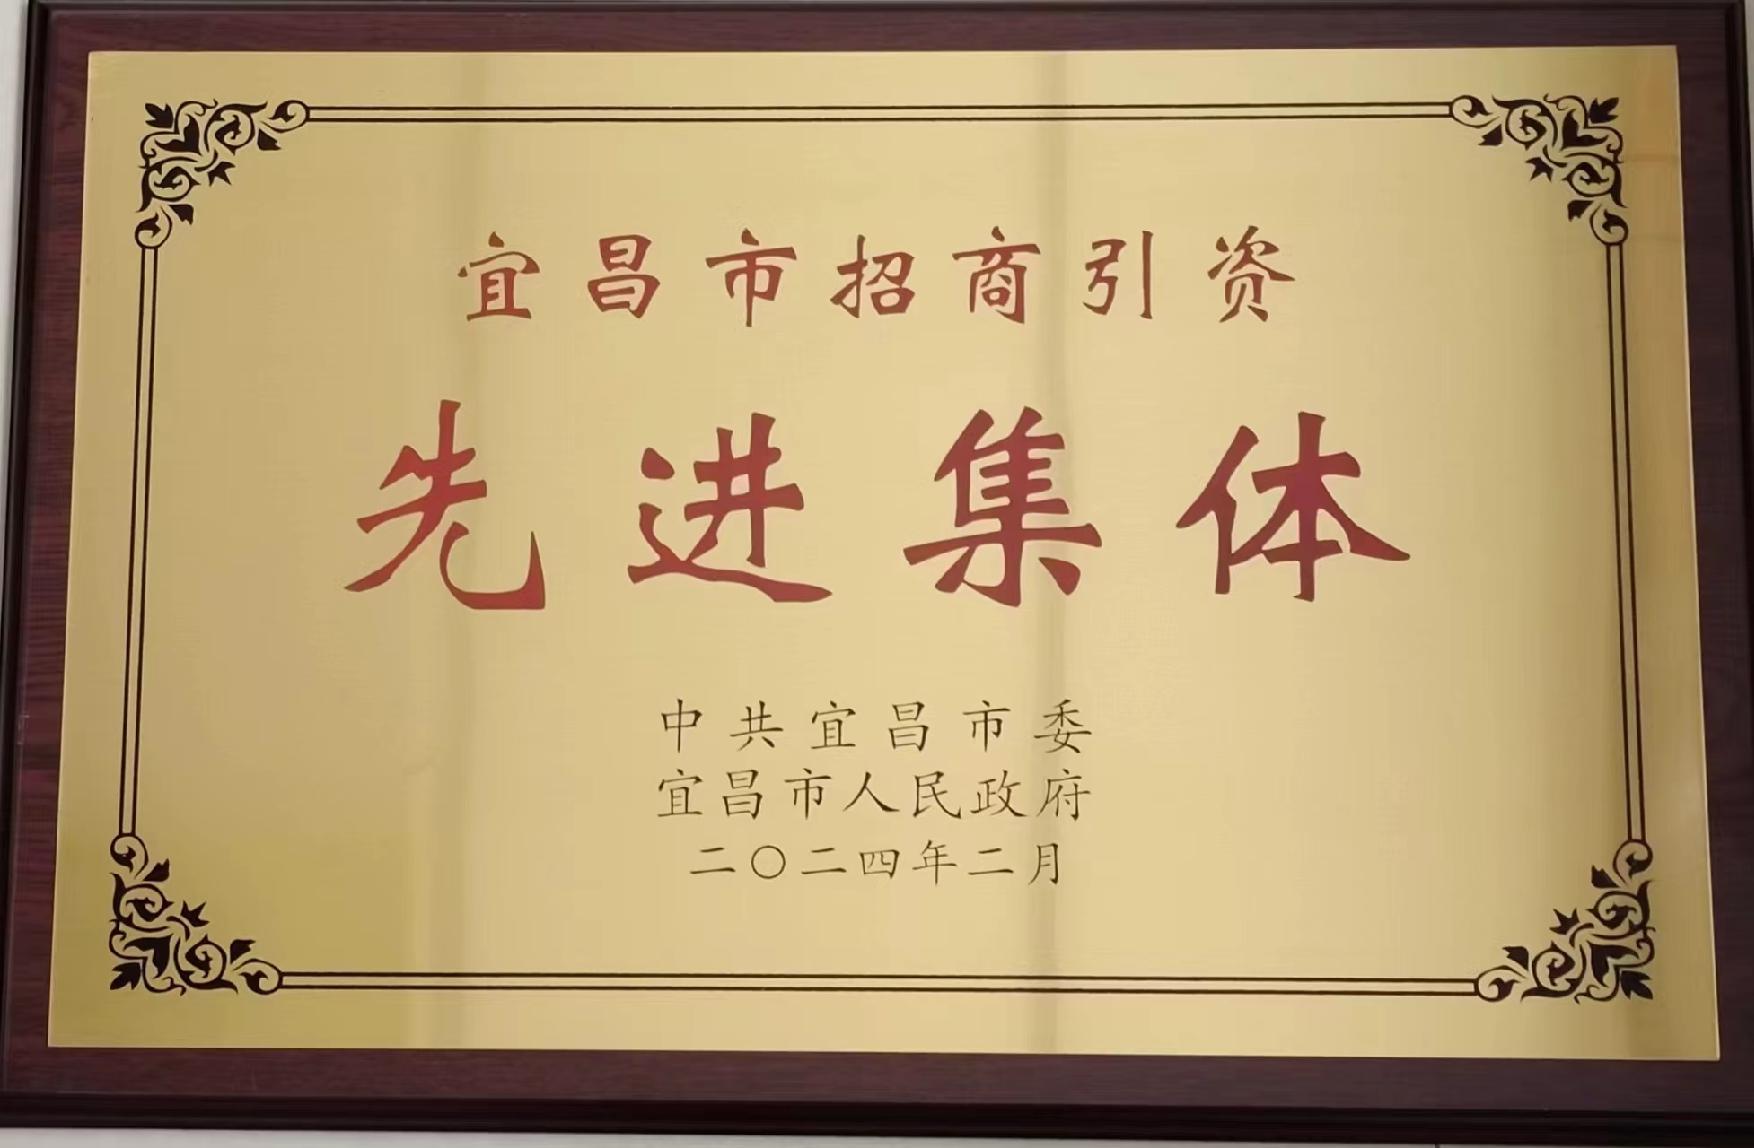 宜昌市招商引资
先进集体
中共宜昌市委
宜昌市人民政府
二〇二四年二月